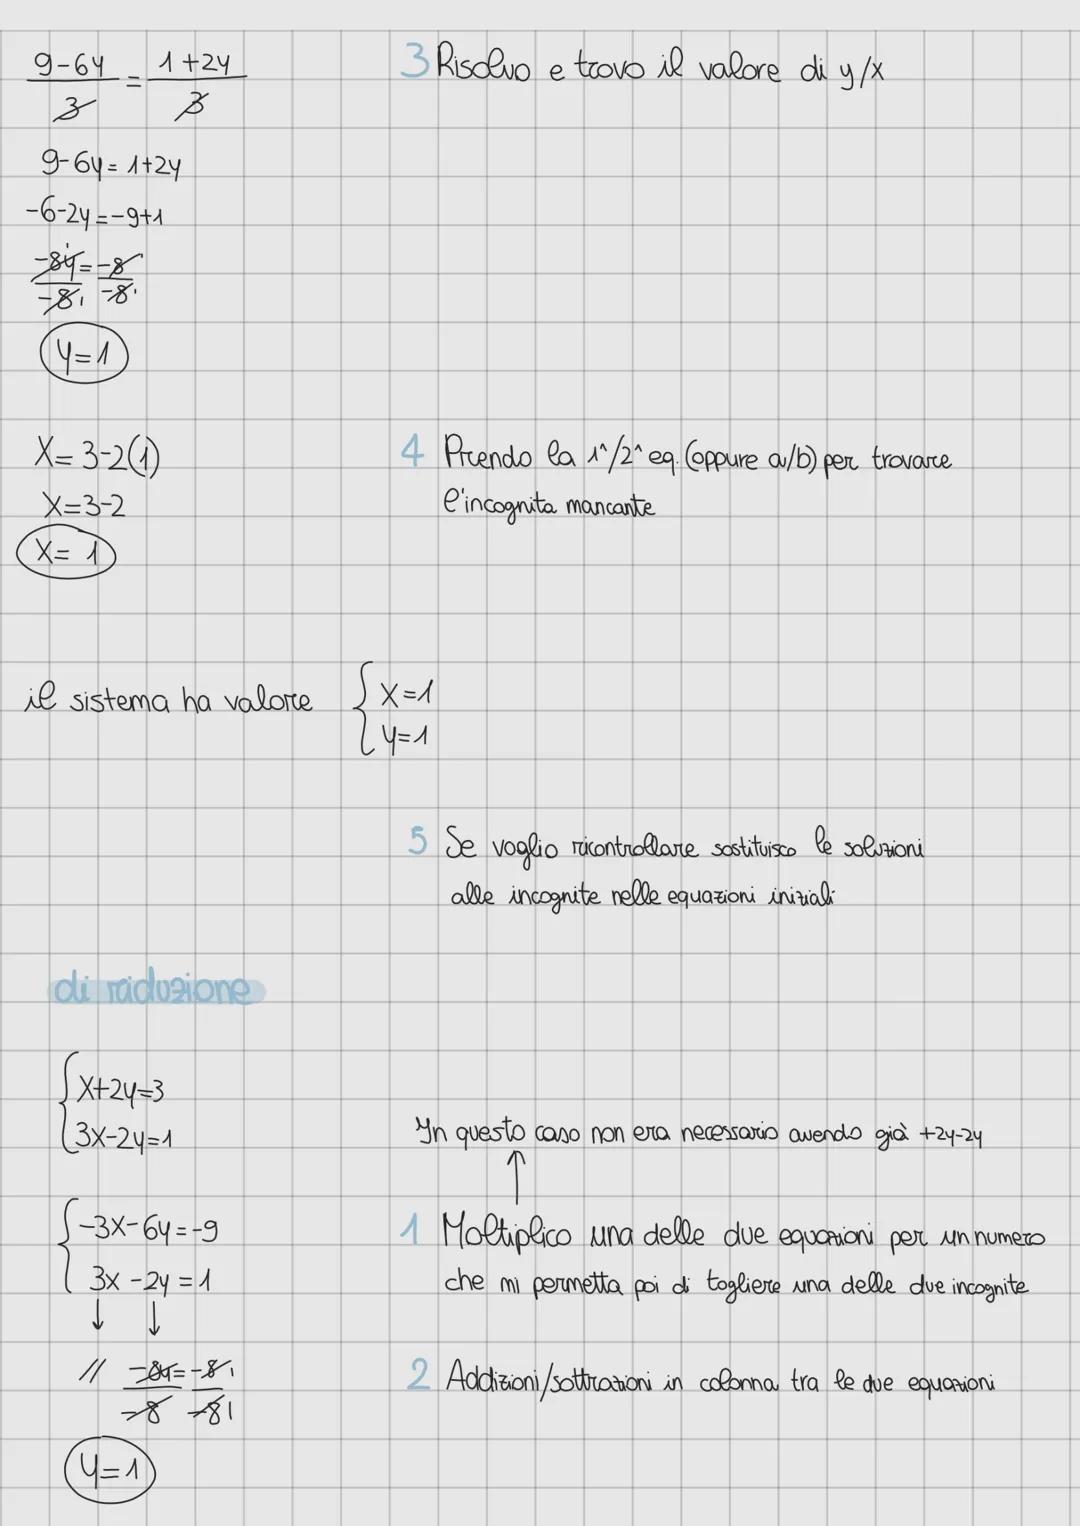 9-6y / 3 = 1+2y / 3
3 Risolvo e trovo il valore di y/x
9-6y = 1+2y
-6-2y = -9+1
-8y / -8 1 = -8 / -8 1
y=1
X= 3-2(1)
4 Prendo la 1^/2^ eq. (oppure a/b) per trovare
X=3-2
l'incognita mancante
X= 1
il sistema ha valore { X=1
y=1
5 Se voglio ricontrollare sostituisco le soluzioni
alle incognite nelle equazioni iniziali
di riduzione
{ X+2y=3
3X-2y=1
In questo caso non era necessario avendo già +2y-2y
↑
{ -3X-6y=-9
1 Moltiplico una delle due equazioni per un numero
3x -2y = 1
che mi permetta poi di togliere una delle due incognite
↓ ↓
// -8y / -8 = -8 1 / -8 1
2 Addizioni/sottrazioni in colonna tra le due equazioni
y=1